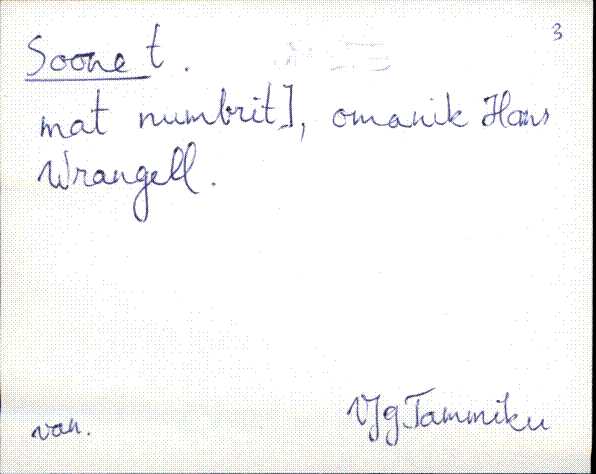 3
Soone t.
mat numbrit], omanik Hans
Wrangell.
van.
VJg Tammiku